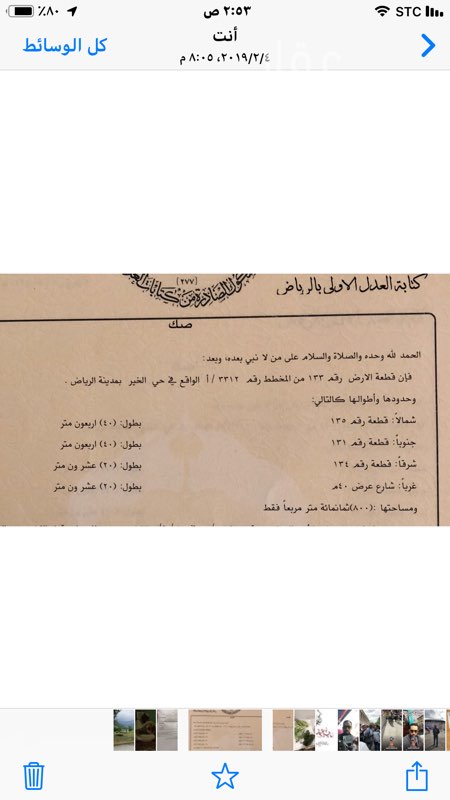 STC ٢:٥٣ ص ٪٨٠
أنت
كل الوسائط
٢٠١٩/٢/٤، ٨:٠٥ م
عقار
كتابة العدل الاولى بالرياض
(٢٧٧)
صك
الحمد لله وحده والصلاة والسلام على من لا نبي بعده، وبعد:
فإن قطعة الارض رقم ١٣٣ من المخطط رقم ٣٣١٢ / أ الواقع في حي الخير بمدينة الرياض .
وحدودها وأطوالها كالتالي:
شمالاً: قطعة رقم ١٣٥ بطول: (٤٠) اربعون متر
جنوباً: قطعة رقم ١٣١ بطول: (٤٠) اربعون متر
شرقاً: قطعة رقم ١٣٤ بطول: (٢٠) عشر ون متر
غرباً: شارع عرض ٤٠م بطول: (٢٠) عشر ون متر
ومساحتها :(٨٠٠)ثمانمائة متر مربعاً فقط